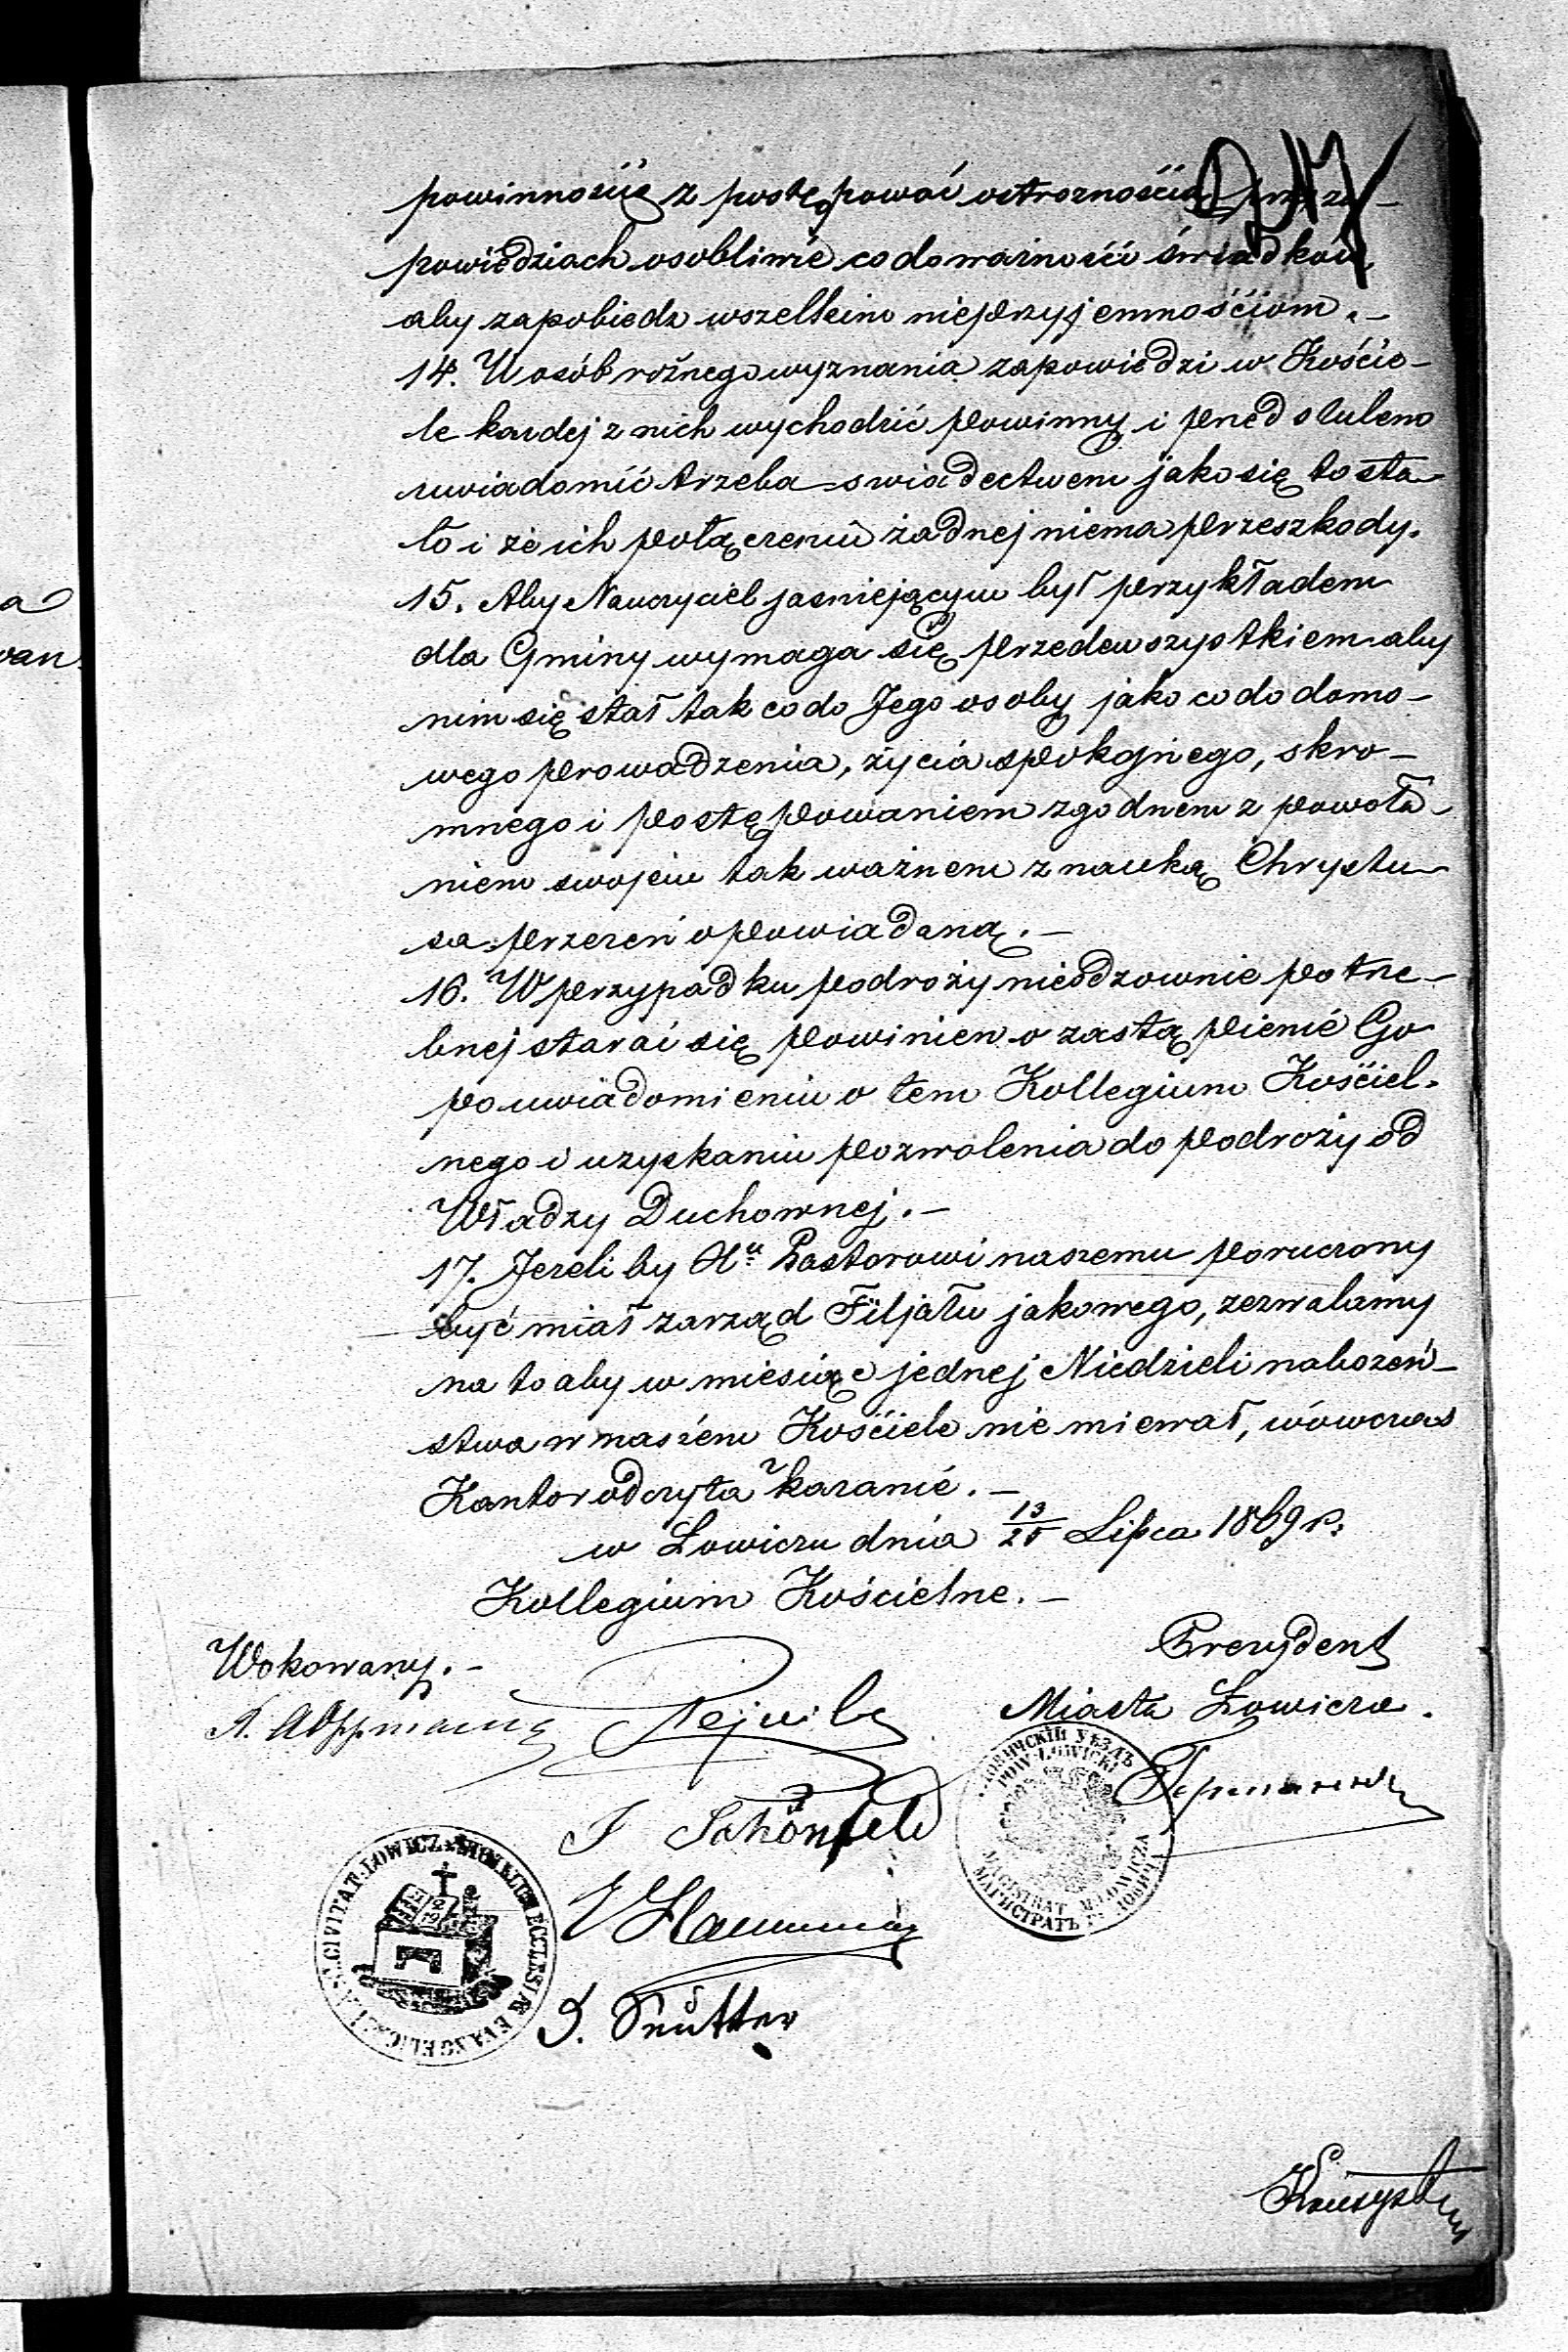 powinnością z postępować ostrożnością przy za-
powiedziach osobliwie co do ważności świadków,
aby zapobiedz wszelkim nieprzyjemnościom.-
14. U osób rożnego wyznania zapowiedzi w Kościo-
le kazdej z nich wychodzić powinny i przed slubem
uwiadomić trzeba swiadectwem jako się to sta-
ło i że ich połączeniu żadnej niema przeszkody.
15. Aby Nauczyciel jasniejącym był przykładem
dla Gminy wymaga się przedewszystkiem aby
nim się stał tak co do Jego osoby jako co do domo-
wego prowadzenia, życia spokojnego, skro-
mnego i postępowaniem zgodnem z powoła-
niem swojem tak ważnem z nauką Chrystu-
sa przezeń opowiadaną.-
16. W przypadku podroży nieodzownie potrze-
bnej starać się powinien o zastąpienie Go
po uwiadomieniu o tem Kollegium Kościel-
nego i uzyskaniu pozwolenia do podroży od
Władzy Duchownej.-
17. Jezeli by Pastorowi naszemu poruczony
być miał zarząd Filjału jakowego, zezwalamy
na to aby w miesiąc jednej Niedzieli nabozeń-
stwa w naszem Kościele nie miewał, wówczas
Kantor odczyta kazanie.-
w Łowiczu dnia 13/25 Lipca 1869 r.
Kollegium Kościelne.-
Wokowany.-
Prezydent
Miasta Łowicza.
J Schönfeld
POW. ŁOWICKI
MAGISTRAT M. ŁOWICZA
МАГИСТРАТЪ Г. ЛОВИЧА